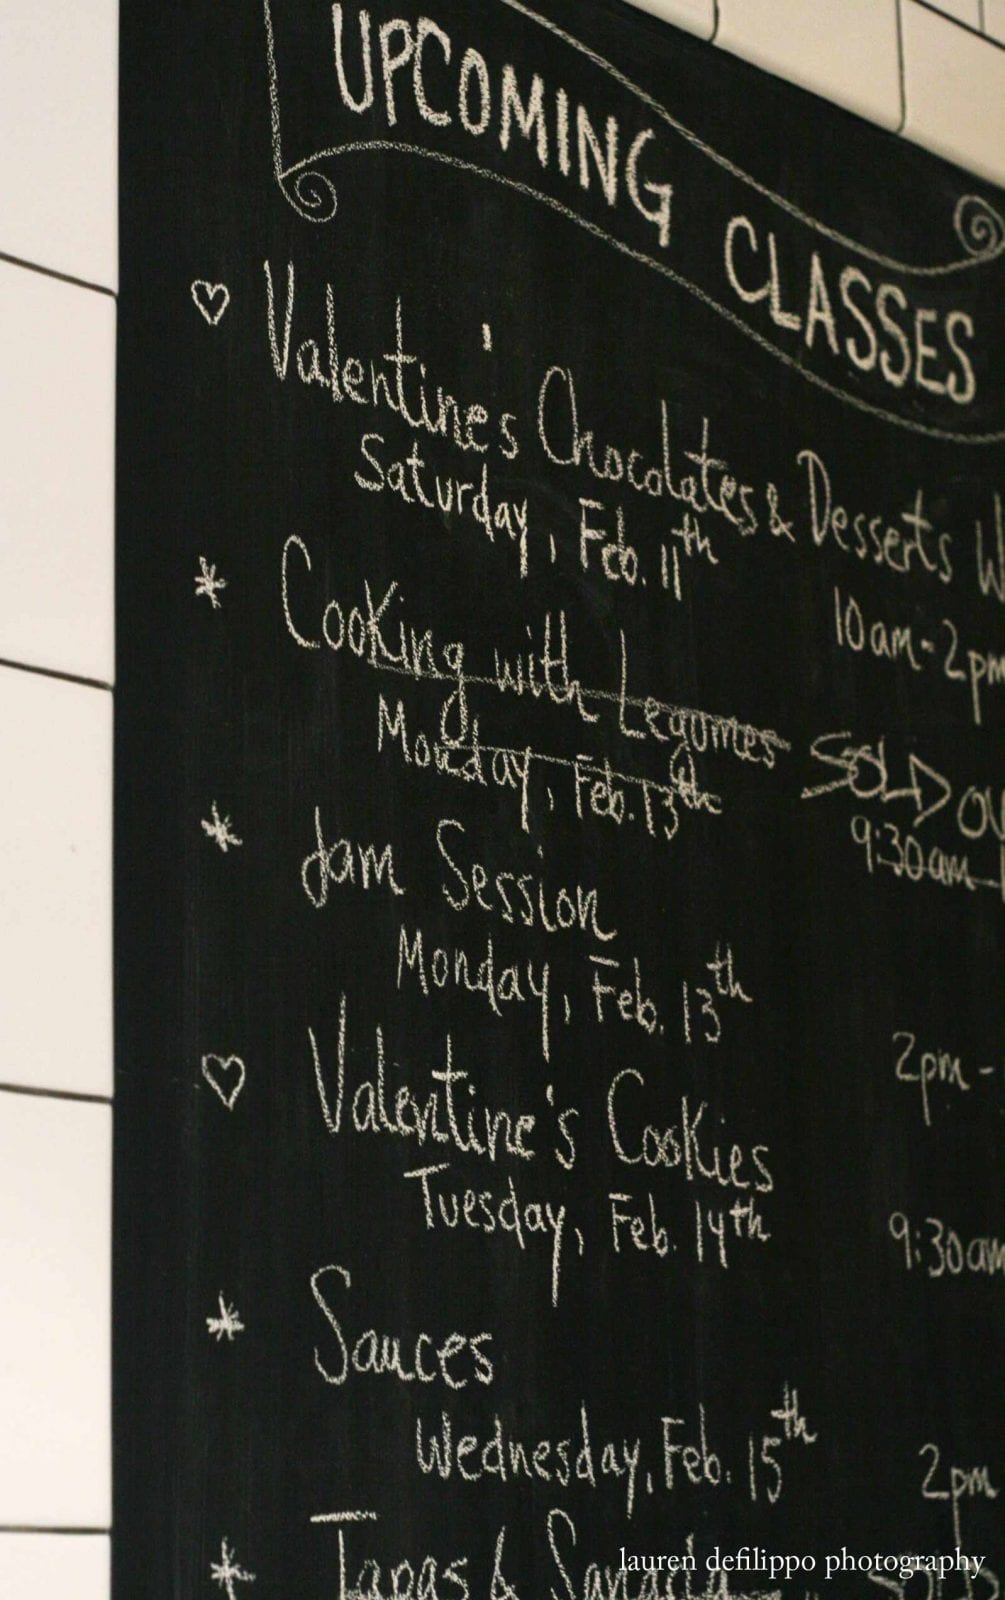 UPCOMING CLASSES
Valentine's Chocolates & Desserts
Saturday, Feb. 11th 10am-2pm
Cooking with Legumes SOLD
Monday, Feb. 13th 9:30am-
Jam Session
Monday, Feb. 13th 2pm-
Valentine's Cookies
Tuesday, Feb. 14th 9:30am
Sauces
Wednesday, Feb. 15th 2pm
Tapas &
lauren defilippo photography